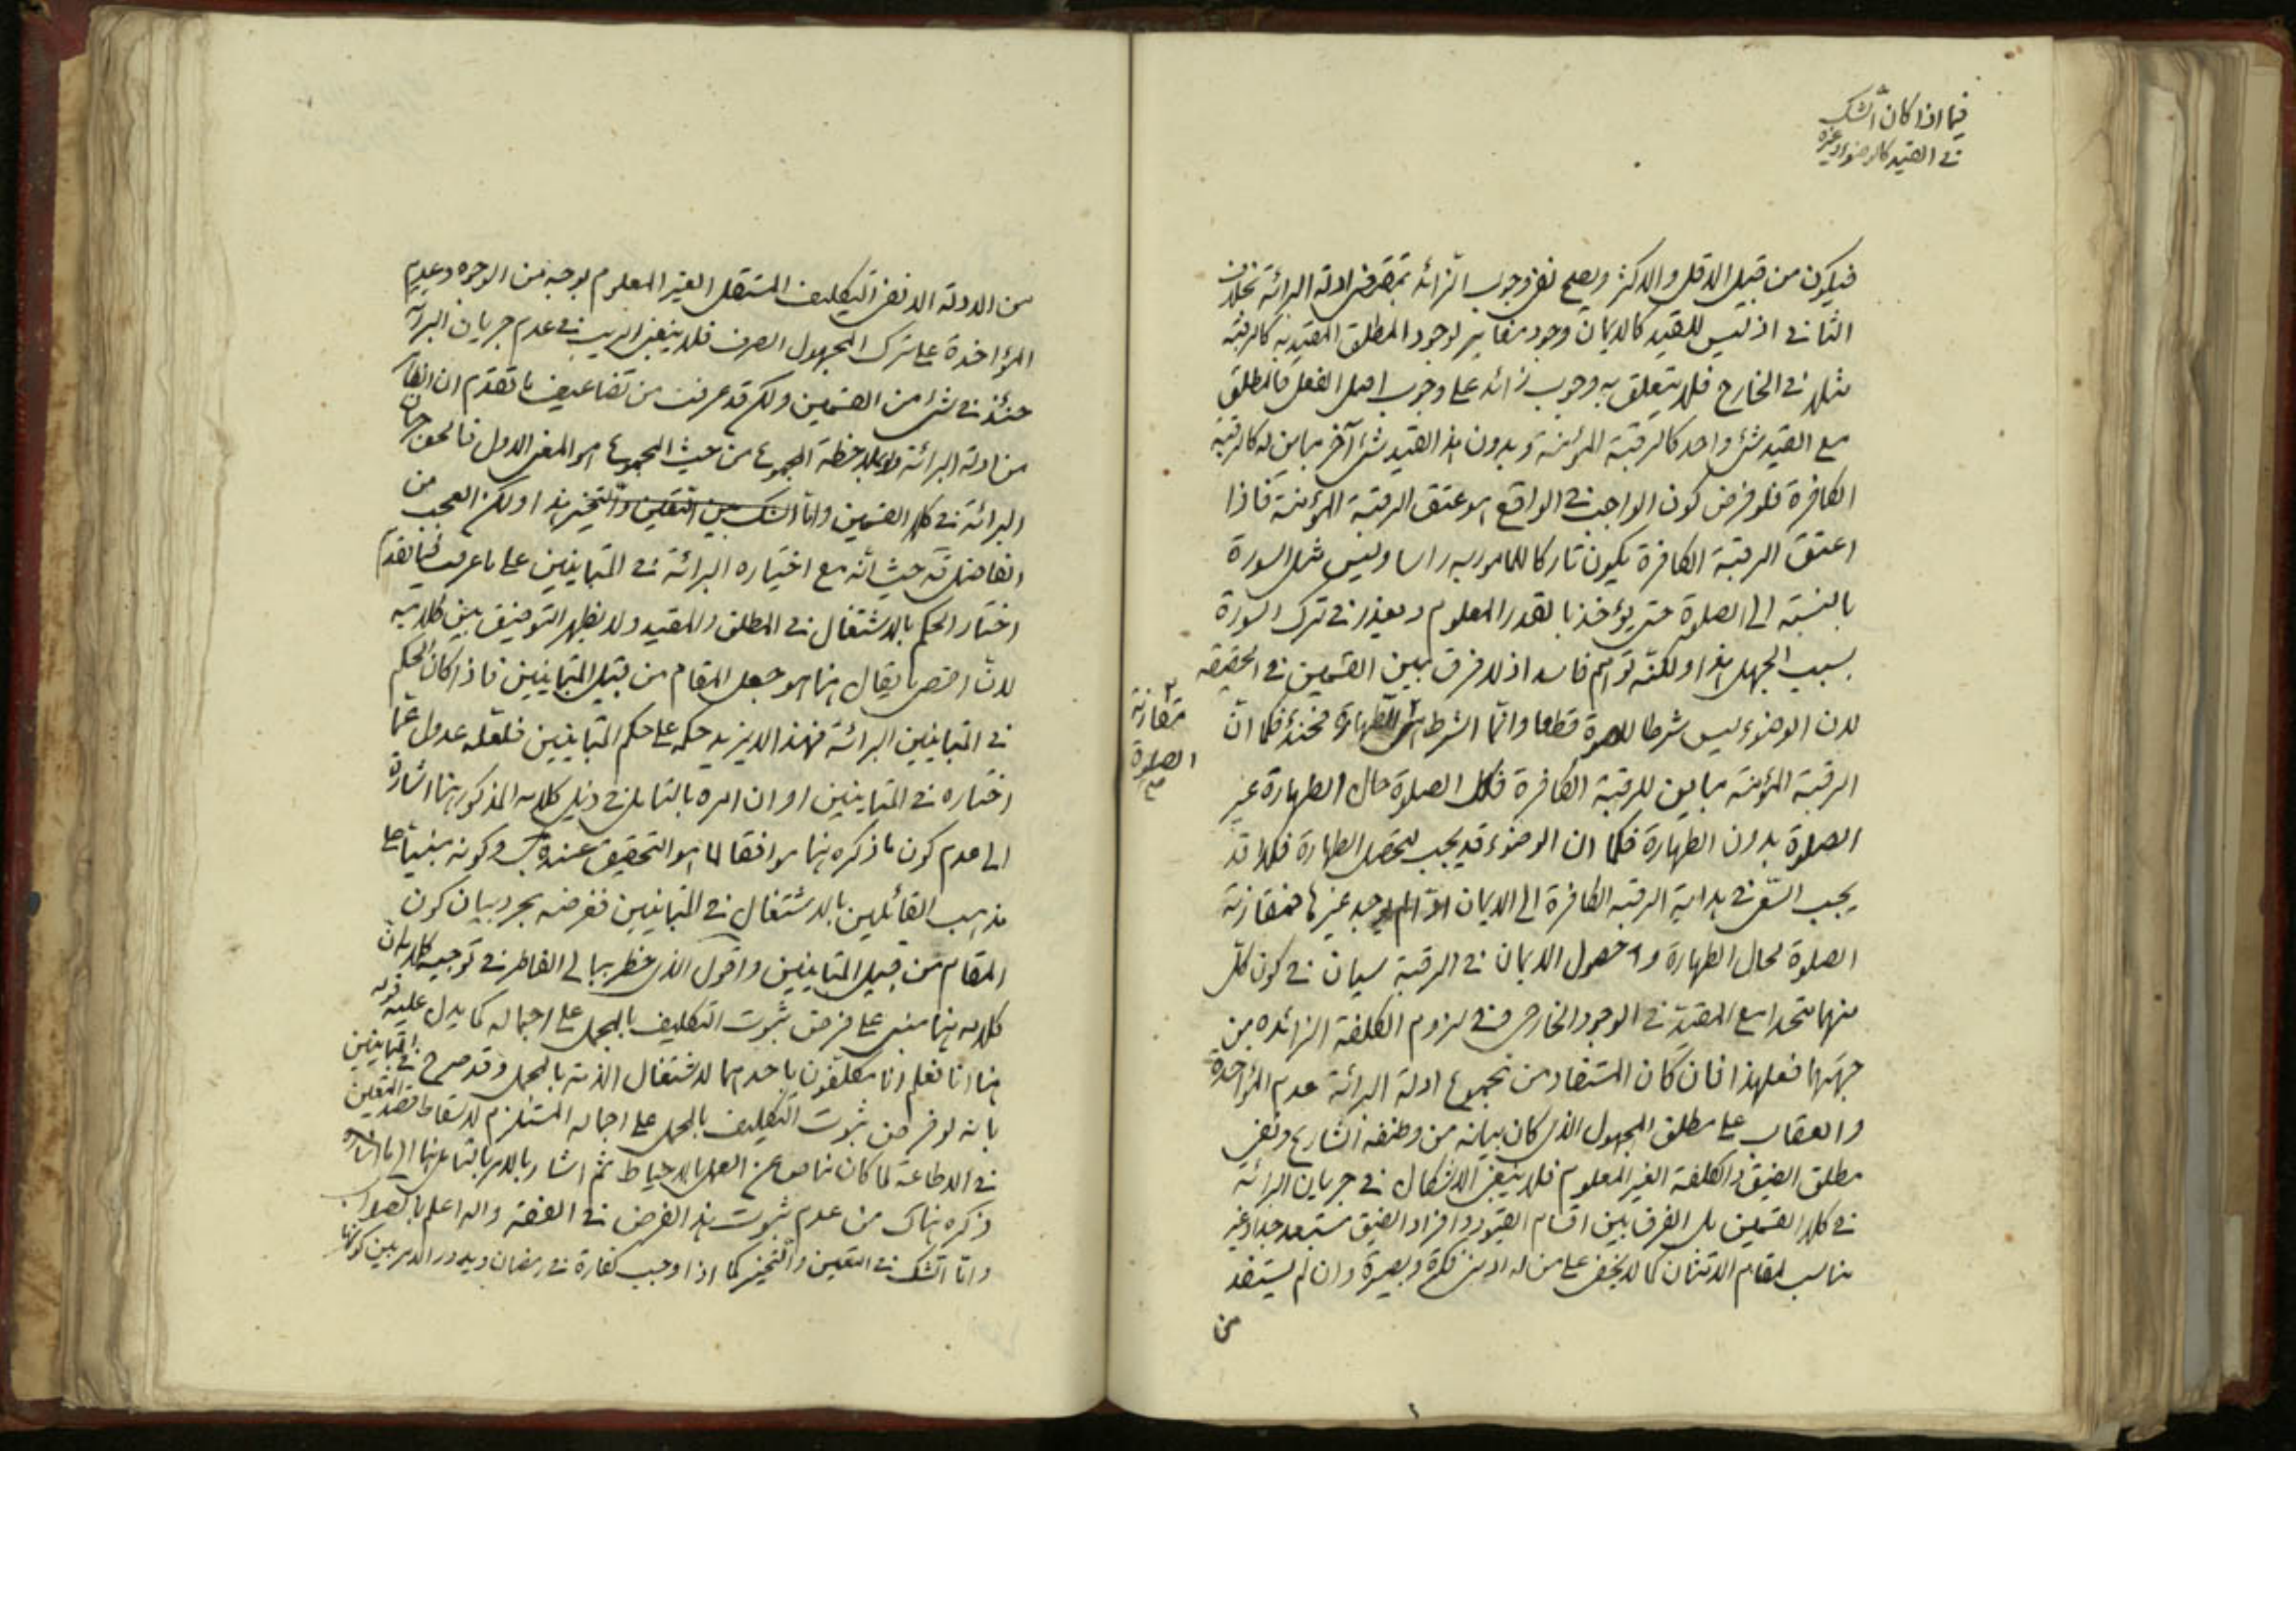 فيما اذا كان الشك
في القيد كالوضوء وغيره
فيكون من قبيل الاقل والاكثر ويصح نفى وجوب الزائد بمقتضى ادلة البرائة بخلاف
الثاني اذ ليس للقيد كالايمان وجود مغاير لوجود المطلق المقيد به كالرقبة
مثلا في الخارج فلا يتعلق به وجوب زائد على وجوب اصل الفعل فالمطلق
مع القيد شئ واحد كالرقبة المؤمنة وبدون هذا القيد شئ آخر مباين له كالرقبة
الكافرة فلو فرض كون الواجب في الواقع هو عتق الرقبة المؤمنة فاذا
اعتق الرقبة الكافرة يكون تاركا للمامور به راسا وليس مثل السورة
بالنسبة الى الصلوة حتى يؤخذ بالقدر المعلوم ويعذر في ترك السورة
بسبب الجهل هذا ولكنه توهم فاسد اذ لا فرق بين القسمين في الحقيقه
لان الوضوء ليس شرطا للصلوة قطعا وانما الشرط الطهارة فحينئذ فكما ان
مقارنة
الصلوة
الرقبة المؤمنة مباين للرقبة الكافرة فكذا الصلوة حال الطهارة غير
الصلوة بدون الطهارة فكما ان الوضوء قد يجب لتحصيل الطهارة فكذا قد
يجب السعى في هداية الرقبة الكافرة الى الايمان اذا لم يوجد غيرها فمقارنة
الصلوة لحال الطهارة و حصول الايمان في الرقبة سيان في كون كل
منهما متحدا مع المقيد في الوجود الخارجى وفى لزوم الكلفة الزائده من
جهتهما فعلى هذا فان كان المستفاد من مجموع ادلة البرائة عدم المؤاخذة
والعقاب على مطلق المجهول الذى كان بيانه من وظيفة الشارع ونفى
مطلق الضيق والكلفة الغير المعلوم فلا ينبغى الاشكال في جريان البرائة
في كلا القسمين بل الفرق بين اقسام القيود وافراد الضيق مستبعد جدا وغير
مناسب لمقام الامتنان كما لا يخفى على من له ادنى فكرة وبصيرة وان لم يستفد
من
من الادلة الا نفى التكليف المستقل الغير المعلوم بوجه من الوجوه وعدم
المؤاخذة على ترك المجهول الصرف فلا ينبغى الريب في عدم جريان البرائة
حينئذ في شئ من القسمين ولكن قد عرفت من تضاعيف ما تقدم ان الظاهر
من ادلة البرائة بملاحظة المجموع من حيث المجموع هو المعنى الاول فالحق جريان
البرائة في كلا القسمين واما الشك بين التعيين والتخيير هذا ولكن العجب من
الفاضل قه حيث انه مع اختياره البرائة في المتباينين على ما عرفت فيما تقدم
اختار الحكم بالاشتغال في المطلق والمقيد ولا يظهر التوفيق بين كلاميه
لان اقصى ما يقال هنا هو جعل المقام من قبيل المتباينين فاذا كان الحكم
في المتباينين البرائة فهذا لا يزيد حكمه على حكم المتباينين فلعله عدول عما
اختاره في المتباينين او ان امره بالتامل في ذيل كلامه المذكور هنا اشارة
الى عدم كون ما ذكره هنا موافقا لما هو التحقيق عنده وكونه مبنيا على
مذهب القائلين بالاشتغال في المتباينين فغرضه مجرد بيان كون
المقام من قبيل المتباينين واقول الذى خطر ببالى الفاطر في توجيه كلامه ان
كلامه هنا مبنى على فرض ثبوت التكليف بالمجمل على اجماله كما يدل عليه قوله
هنا انا نعلم انا مكلفون باحدهما لاشتغال الذمة بالمجمل وقد صرح في المتباينين
بانه لو فرض ثبوت التكليف بالمجمل على اجماله المستلزم لاسقاط قصد التعيين
في الاطاعة لما كان مناص عن العمل بالاحتياط ثم اشار بالامر بالتامل هنا الى ما اشاره
ذكره هناك من عدم ثبوت هذا الفرض في الفقه والله اعلم بالصواب
واما الشك في التعيين والتخيير كما اذا وجب كفارة في رمضان ويدور الامر بين كونها